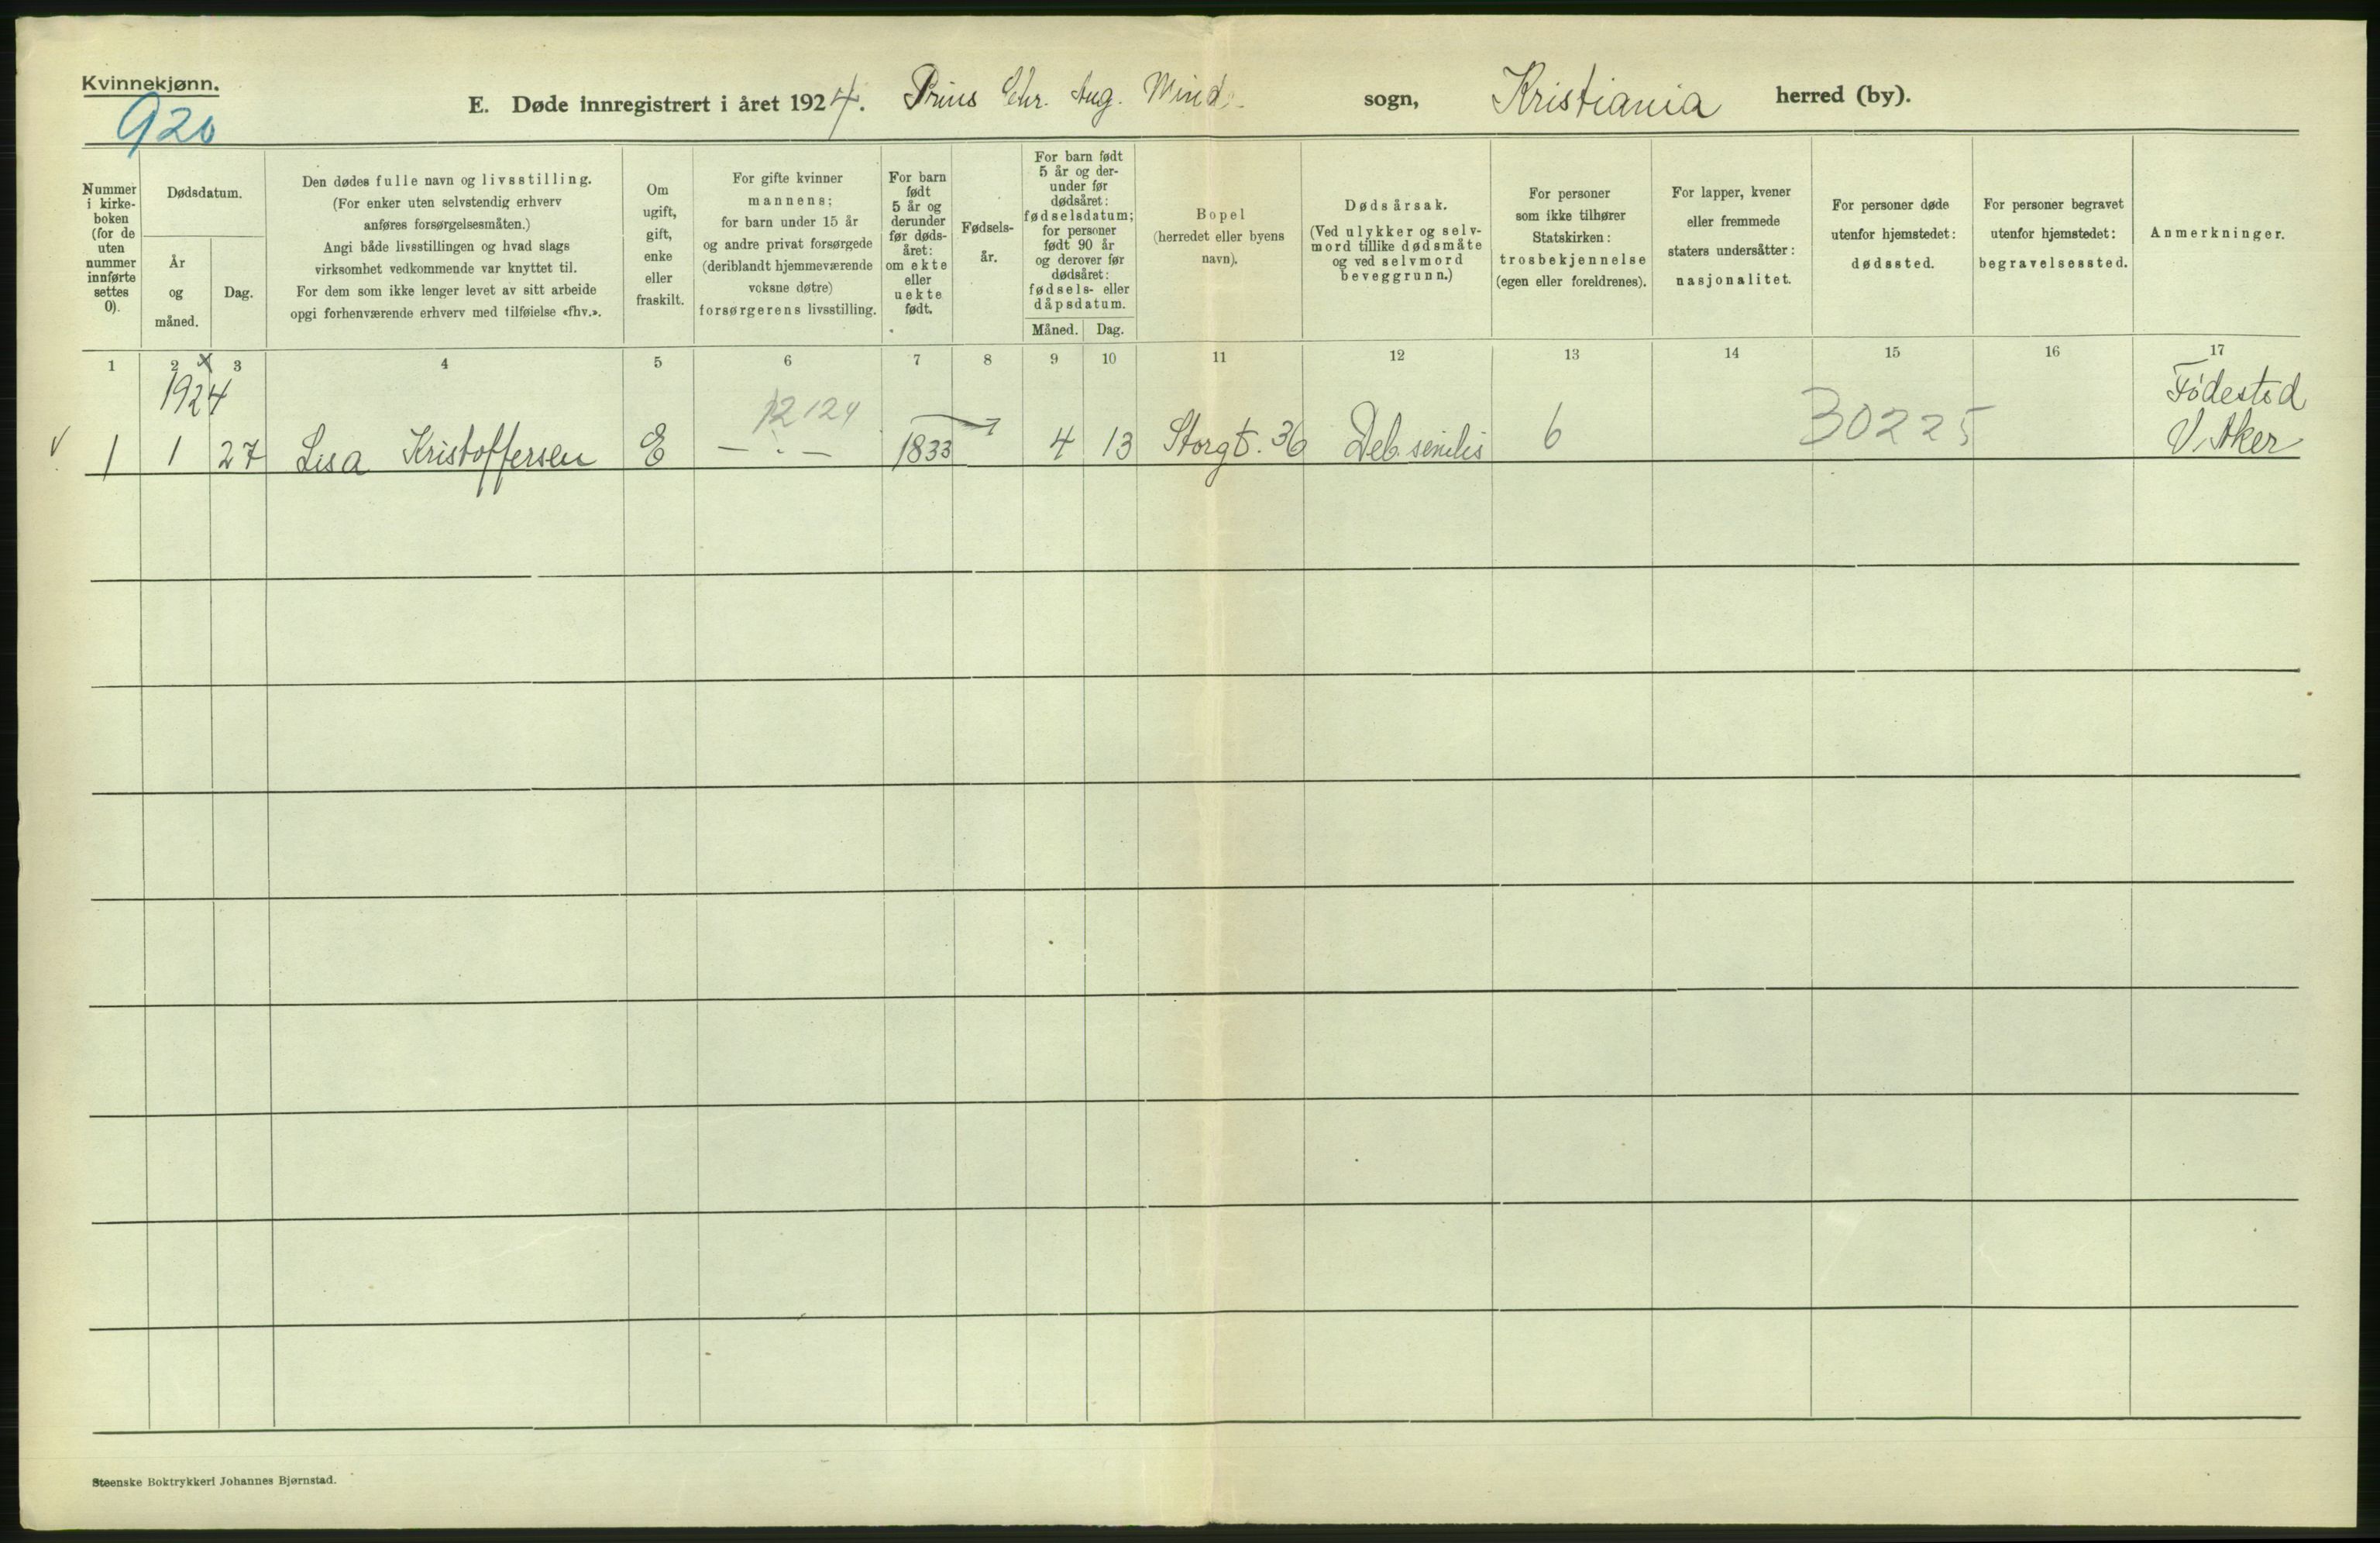 Kvinnekjønn.
920
E. Døde innregistrert i året 1924. Prins Chr. Aug. Minde sogn, Kristiania herred (by).
Nummer
i kirke-
boken
(for de
uten
nummer
innførte
settes
0).
Dødsdatum.
År
og
måned.
Dag.
Den dødes fulle navn og livsstilling.
(For enker uten selvstendig erhverv
anføres forsørgelsesmåten.)
Angi både livsstillingen og hvad slags
virksomhet vedkommende var knyttet til.
For dem som ikke lenger levet av sitt arbeide
opgi forhenværende erhverv med tilføielse «fhv.».
Om
ugift,
gift,
enke
eller
fraskilt.
For gifte kvinner
mannens;
for barn under 15 år
og andre privat forsørgede
(deriblandt hjemmeværende
voksne døtre)
forsørgerens livsstilling.
For barn
født
5 år og
derunder
før døds-
året:
om ekte
eller
uekte
født.
Fødsels-
år.
For barn født
5 år og der-
under før
dødsåret:
fødselsdatum;
for personer
født 90 år
og derover før
dødsåret:
fødsels- eller
dåpsdatum.
Måned. Dag.
Bopel
(herredet eller byens
navn).
Dødsårsak.
(Ved ulykker og selv-
mord tillike dødsmåte
og ved selvmord
beveggrunn.)
For personer
som ikke tilhører
Statskirken:
trosbekjennelse
(egen eller foreldrenes).
For lapper, kvener
eller fremmede
staters undersåtter:
nasjonalitet.
For personer døde
utenfor hjemstedet:
dødssted.
For personer begravet
utenfor hjemstedet:
begravelsessted.
Anmerkninger.
1 2 x 3 4 5 6 7 8 9 10 11 12 13 14 15 16 17
1924 12124 30225 Födested
1 1 27 Lisa Kristoffersen E — . — 1833 4 13 Storgt. 36 Deb. senilis 6 V. Aker
Steenske Boktrykkeri Johannes Bjørnstad.